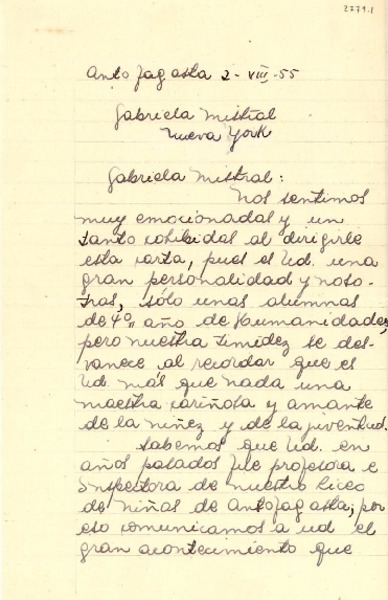 2779.1
Antofagasta 2-VIII-55
Gabriela Mistral
Nueva York
Gabriela Mistral:
Nos sentimos
muy emocionadas y un
tanto cohibidas al dirigirle
esta carta, pues es Ud. una
gran personalidad y noso-
tras, sólo unas alumnas
de 4º año de Humanidades,
pero nuestra timidez se des-
vanece al recordar que es
Ud. más que nada una
maestra cariñosa y amante
de la niñez y de la juventud.
Sabemos que Ud. en
años pasados fue profesora e
Inspectora de nuestro Liceo
de Niñas de Antofagasta; por
eso comunicamos a ud el
gran acontecimiento que